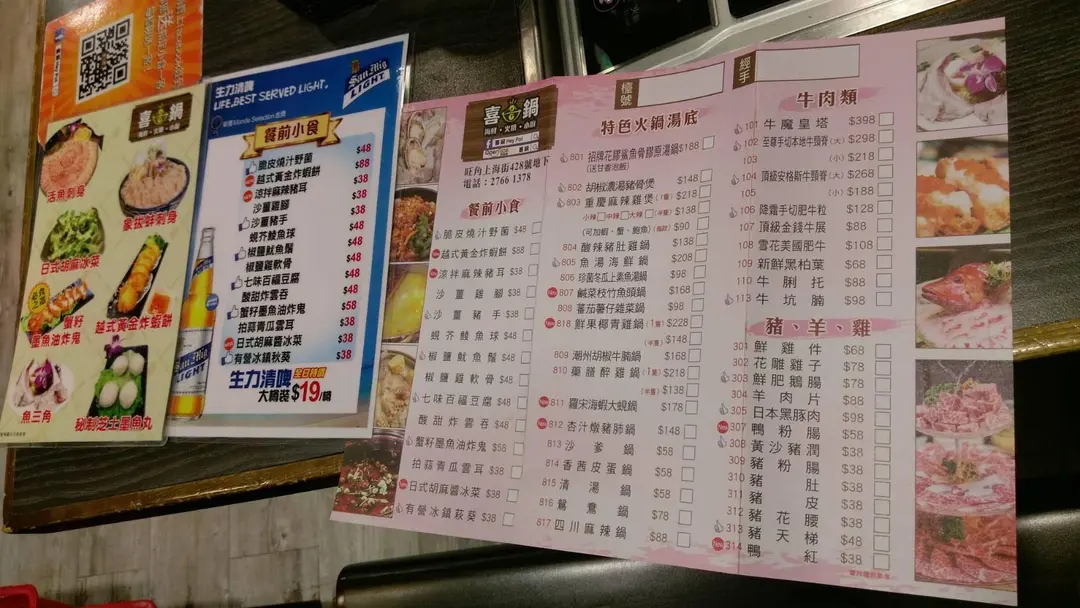 喜鍋
海鮮•火鍋•小廚
活魚刺身
象拔蚌刺身
日式胡麻冰菜
越式黃金炸蝦餅
蟹籽
墨魚油炸鬼
魚三角
秘制芝士墨魚丸
生力清啤
LIFE, BEST SERVED LIGHT.
San Mig
LIGHT
Monde Selection
餐前小食
脆皮燒汁野菌 $48
越式黃金炸蝦餅 $88
涼拌麻辣豬耳 $38
沙薑雞腳 $38
沙薑豬手 $38
蜆芥鯪魚球 $48
椒鹽魷魚鬚 $48
椒鹽雞軟骨 $48
七味百福豆腐 $48
酸甜炸雲吞 $48
蟹籽墨魚油炸鬼 $58
拍蒜青瓜雲耳 $38
日式胡麻醬冰菜 $38
有營冰鎮秋葵 $38
生力清啤 全日特價
大樽裝 $19/樽
San Mig
LIGHT
喜鍋
海鮮•火鍋•小廚
喜鍋 Hey Pot
旺角上海街428號地下
電話：2766 1378
餐前小食
脆皮燒汁野菌 $48
New 越式黃金炸蝦餅 $88
New 涼拌麻辣豬耳 $38
沙薑雞腳 $38
沙薑豬手 $38
蜆芥鯪魚球 $48
椒鹽魷魚鬚 $48
椒鹽雞軟骨 $48
七味百福豆腐 $48
酸甜炸雲吞 $48
蟹籽墨魚油炸鬼 $58
拍蒜青瓜雲耳 $38
New 日式胡麻醬冰菜 $38
有營冰鎮秋葵 $38
檯號
特色火鍋湯底
801 招牌花膠鯊魚骨膠原湯鍋 $188
(送甘香泡飯)
802 胡椒濃湯豬骨煲 $148
803 重慶麻辣雞煲 (1隻) $218
小辣 中辣 大辣 (半隻) $138
(可加蝦、蟹、鮑魚) $90
804 酸辣豬肚雞鍋 $138
805 魚湯海鮮鍋 $208
806 珍菌冬瓜上素魚湯鍋 $98
New 807 鹹菜枝竹魚頭鍋 $168
808 蕃茄薯仔雜菜鍋 $98
New 818 鮮果椰青雞鍋 (1隻) $228
(半隻) $148
809 潮州胡椒牛腩鍋 $168
810 藥膳醉雞鍋 (1隻) $218
(半隻) $138
New 811 羅宋海蝦大蜆鍋 $178
New 812 杏汁燉豬肺鍋 $148
813 沙爹鍋 $58
814 香茜皮蛋鍋 $58
815 清湯鍋 $58
816 鴛鴦鍋 $78
817 四川麻辣鍋 $88
經手
牛肉類
101 牛魔皇塔 $398
102 至尊手切本地牛頸脊 (大) $298
103 (小) $218
104 頂級安格斯牛頸脊 (大) $268
105 (小) $188
106 降霜手切肥牛粒 $128
107 頂級金錢牛展 $88
108 雪花美國肥牛 $108
109 新鮮黑柏葉 $68
110 牛脷托 $88
113 牛坑腩 $98
豬、羊、雞
301 鮮雞件 $68
302 花雕雞子 $78
303 鮮肥鵝腸 $78
304 羊肉片 $88
305 日本黑豚肉 $98
New 307 鴨粉腸 $58
308 黃沙豬潤 $38
309 豬粉腸 $38
310 豬肚 $38
311 豬皮 $38
312 豬花腰 $38
313 豬天梯 $48
New 314 鴨紅 $38